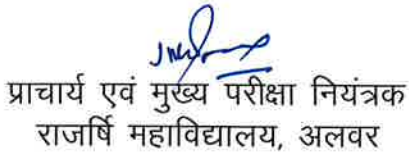 प्राचार्य एवं मुख्य परीक्षा नियंत्रक
राजर्षि महाविद्यालय, अलवर